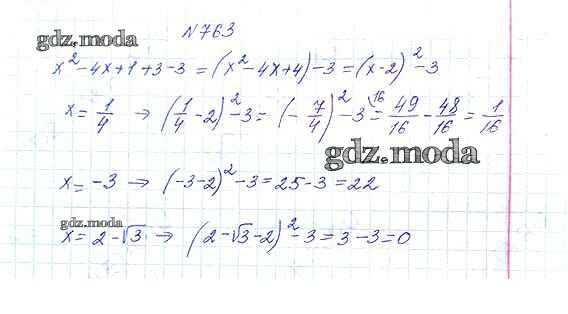 N763
gdz.moda
x² - 4x + 1 + 3 - 3 = (x² - 4x + 4) - 3 = (x - 2)² - 3
x = 1/4 → (1/4 - 2)² - 3 = (- 7/4)² - 3\16 = 49/16 - 48/16 = 1/16
gdz.moda
x = -3 → (-3 - 2)² - 3 = 25 - 3 = 22
gdz.moda
x = 2 - √3 → (2 - √3 - 2)² - 3 = 3 - 3 = 0